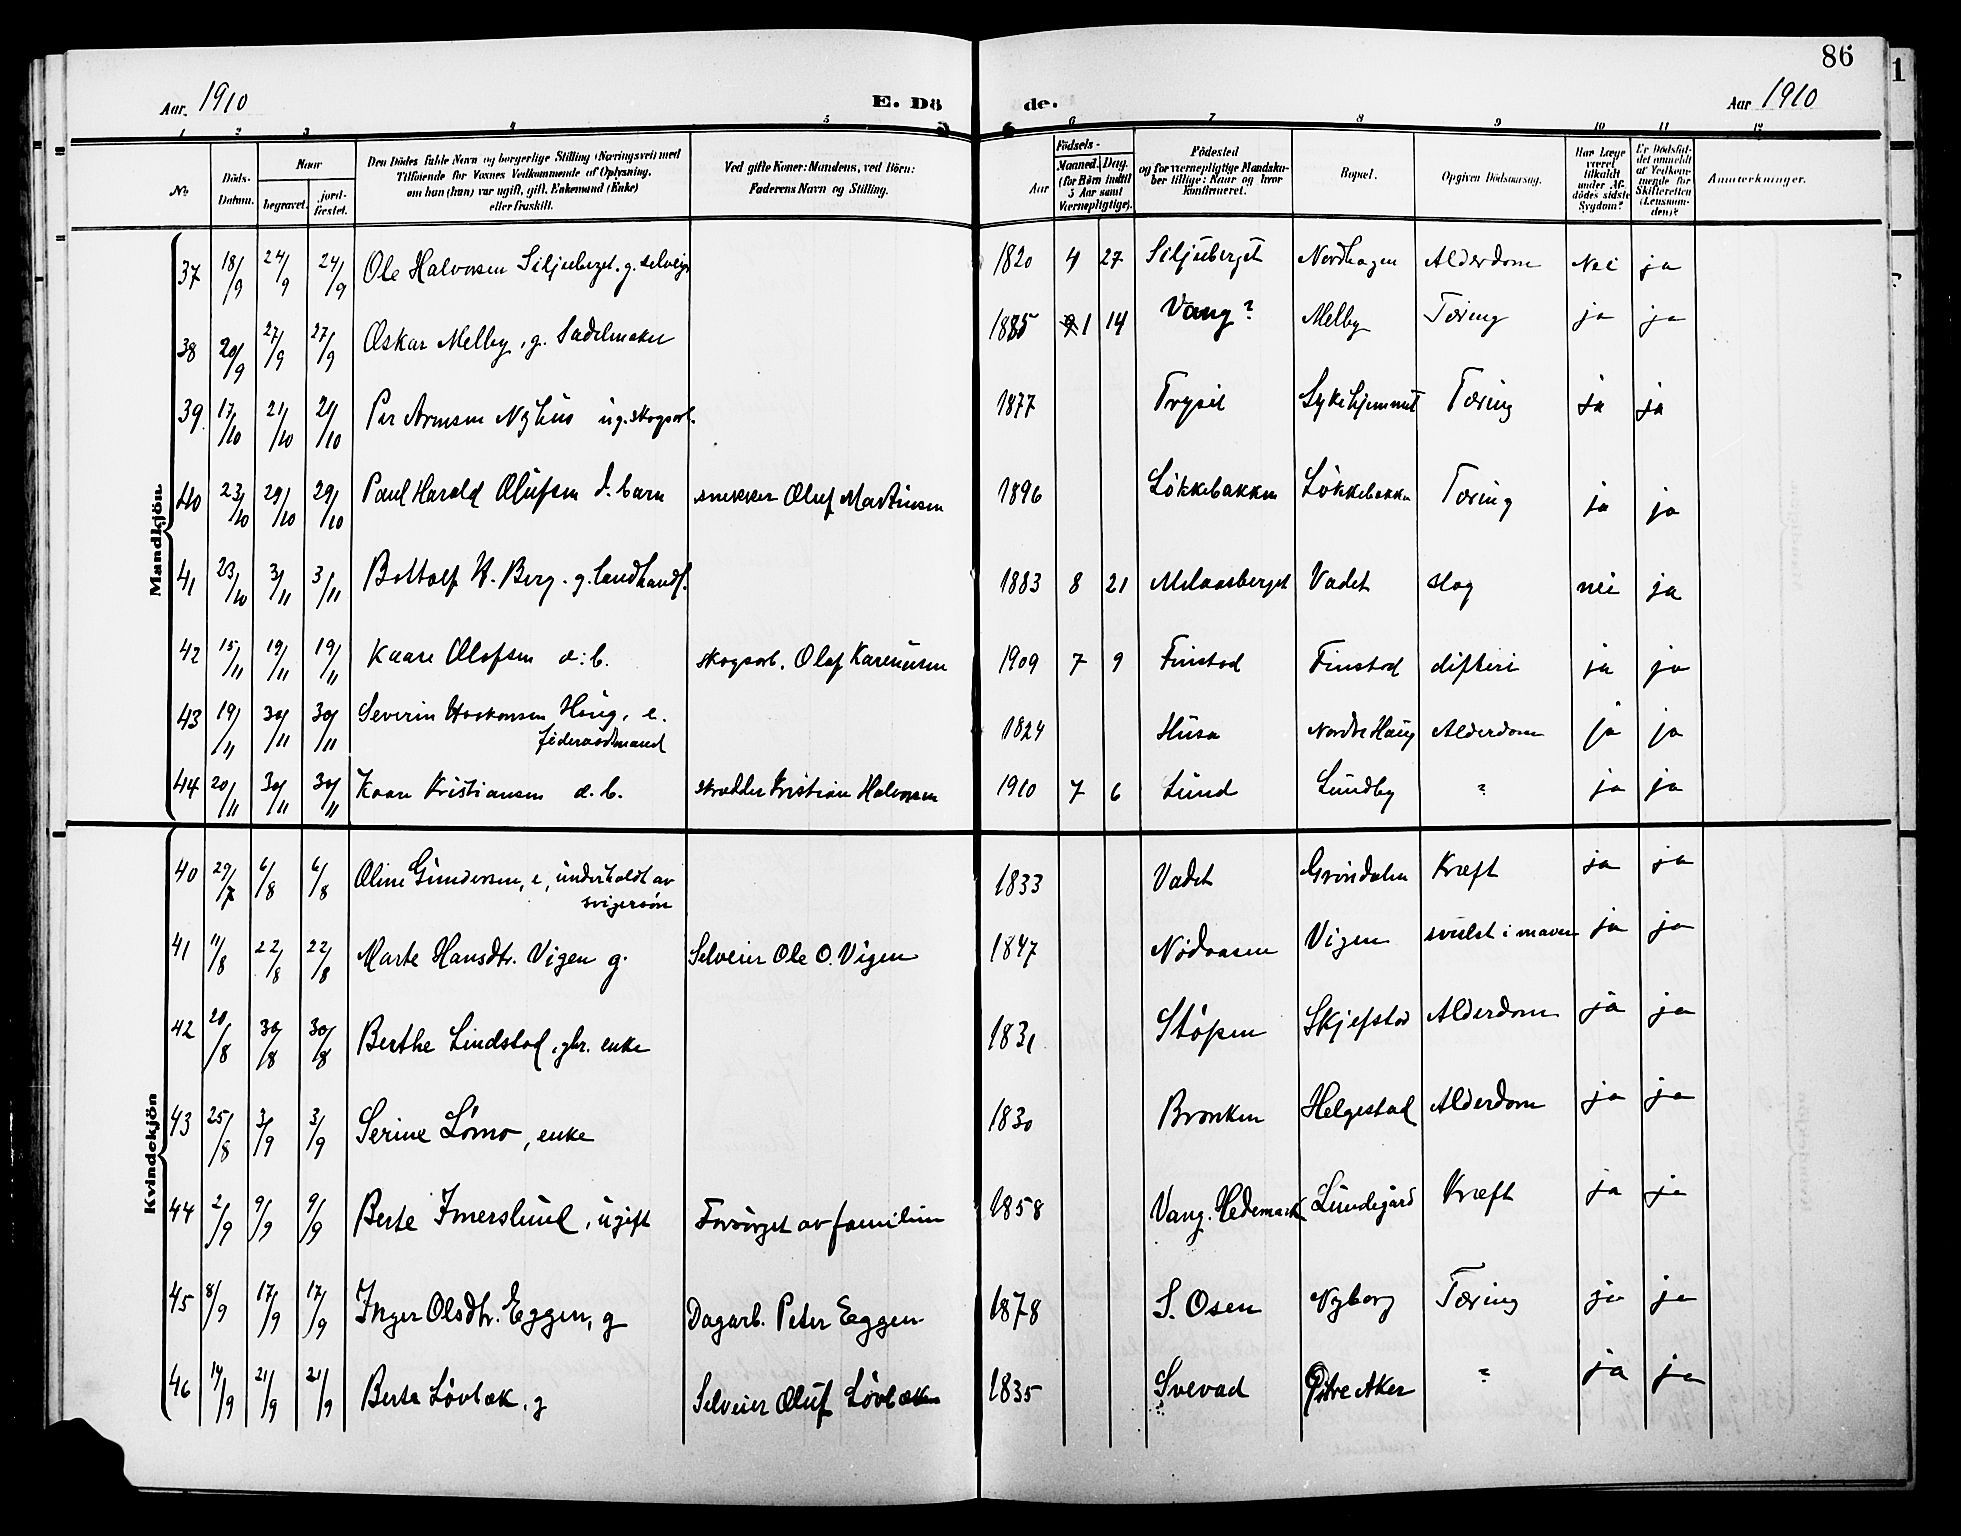 86
Aar. 1910
E. Dö
de.
Aar 1910
1 2 3 4 5 6 7 8 9 10 11 12
No.
Döds-Datum.
Naar
begravet.
jordfæstet.
Den Dödes fulde Navn og borgerlige Stilling (Næringsvei) med
Tilføiende for Voxnes Vedkommende af Oplysning,
om han (hun) var ugift, gift, Enkemand (Enke)
eller fraskilt.
Ved gifte Koner: Mandens, ved Börn:
Faderens Navn og Stilling.
Födsels-
Aar
Maaned. Dag.
(for Börn indtil
5 Aar samt
Værnepligtige).
Födested
og for værnepligtige Mandskaber tillige: Naar og hvor
konfirmeret.
Bopæl.
Opgiven Dödsaarsag.
Har Læge
været
tilkaldt
under Afdödes sidste
Sygdom?
Er Dödsfaldet anmeldt
af Vedkommende for
Skifteretten
(Lensmanden)?
Anmærkninger.
Mandkjön.
37 18/9 24/9 24/9 Ole Halvorsen Siljuberget. g. selveig. 1820 4 27 Siljuberget Nordhagen Alderdom Nei ja
38 20/9 27/9 27/9 Oskar Melby, g. Sadelmaker 1885 1 14 Vang? Melby Tæring ja ja
39 17/10 21/10 21/10 Per Arnesen Nyhus ug. skogsarb. 1877 Trysil Sykehjemmet Tæring ja ja
40 23/10 29/10 29/10 Paul Harald Olufsen d. barn snekker Oluf Martinsen 1896 Løkkebakken Løkkebakken Tæring ja ja
41 23/10 3/11 3/11 Bottolf H. Berg. g. landhandl. 1883 8 21 Melaasberget Vadet slag nei ja
42 15/11 19/11 19/11 Kaare Olafsen d: b. skogsarb. Olaf Kareniusen 1909 7 9 Finstad Finstad difteri ja ja
43 19/11 30/11 30/11 Severin Haakonsen Haug, e.
føderaadmand 1824 Husa Nordre Haug Alderdom ja ja
44 20/11 30/11 30/11 Kaare Kristiansen d. b. skrædder Kristian Halvorsen 1910 7 6 Lund Lundby ? ja ja
Kvindekjön
40 29/7 6/8 6/8 Oline Gundersen, e, underholdt av
svigersøn 1833 Vadet Grøndalen Kræft ja ja
41 11/8 22/8 22/8 Marte Hansdtr. Vigen g. Selveier Ole O. Vigen 1847 Nødaasen Vigen svulst i maven ja ja
42 20/8 30/8 30/8 Berthe Lindstad, gbr. enke 1831 Støpen Skjefstad Alderdom ja ja
43 25/8 3/9 3/9 Serine Lømo, enke 1830 Bronken Helgestad Alderdom ja ja
44 2/9 9/9 9/9 Berte Imerslund, ugift Forsørget av familien 1858 Vang. Hedemark Lundgård Kræft ja ja
45 8/9 17/9 17/9 Inger Olsdtr. Eggen, g Dagarb. Peter Eggen 1878 S. Osen Nyborg Tæring ja ja
46 14/9 21/9 21/9 Berte Løvbæk, g Selveier Oluf Løvbæken 1835 Svevad Østre Aker ? ja ja